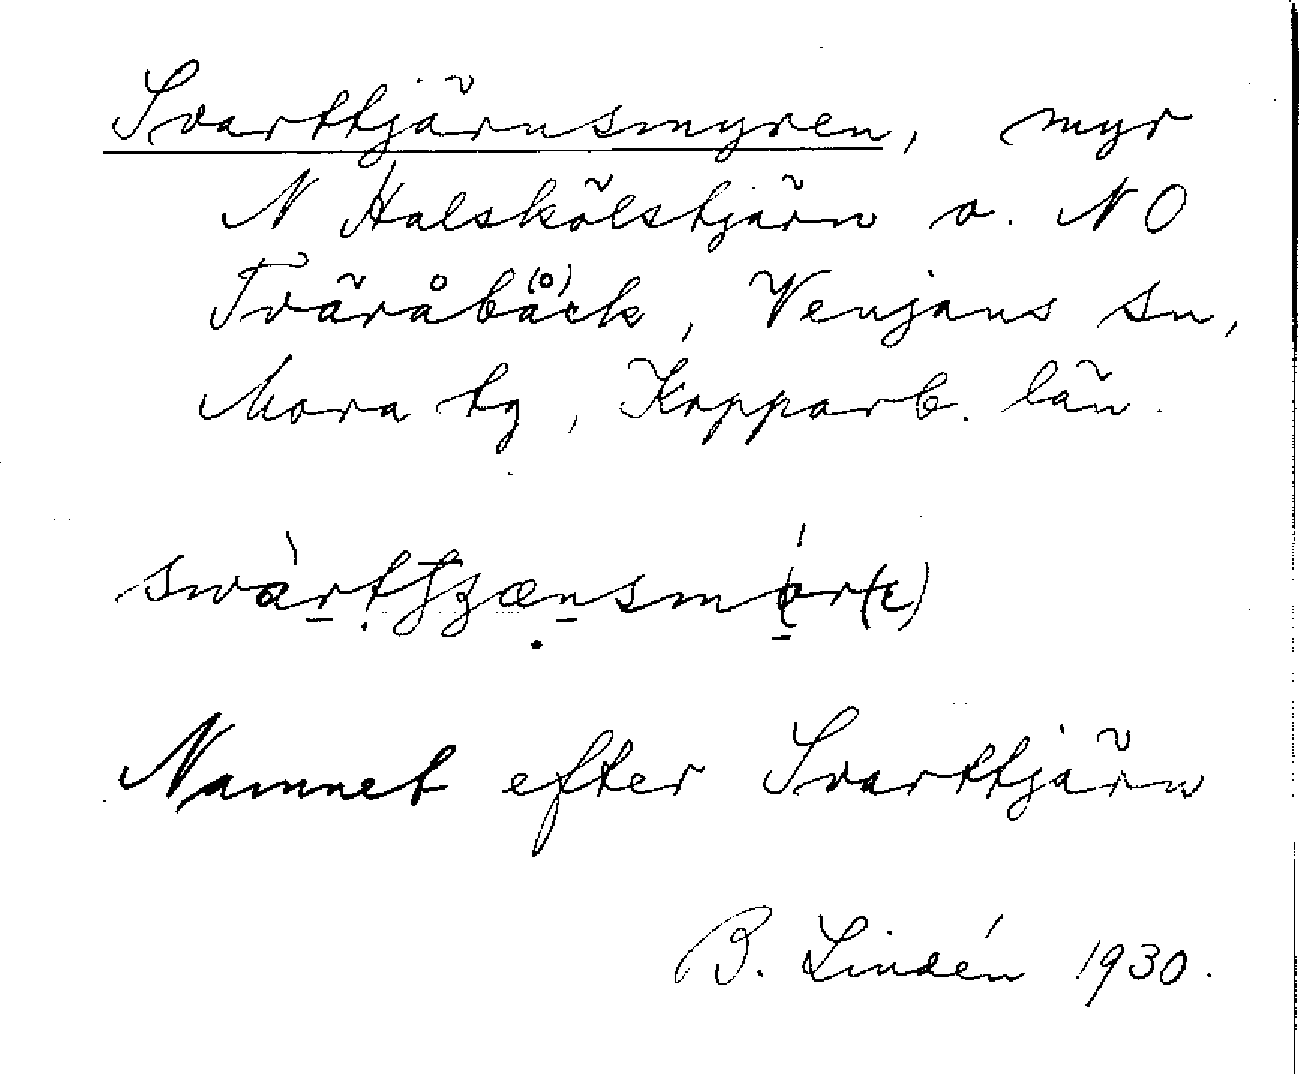 Svarttjärnsmyren, myr
N Halskölstjärn o. NO
Tväråbäck, Venjans sn,
Mora tg, Kopparb. län.
Namnet efter Svarttjärn
B. Lindén 1930.